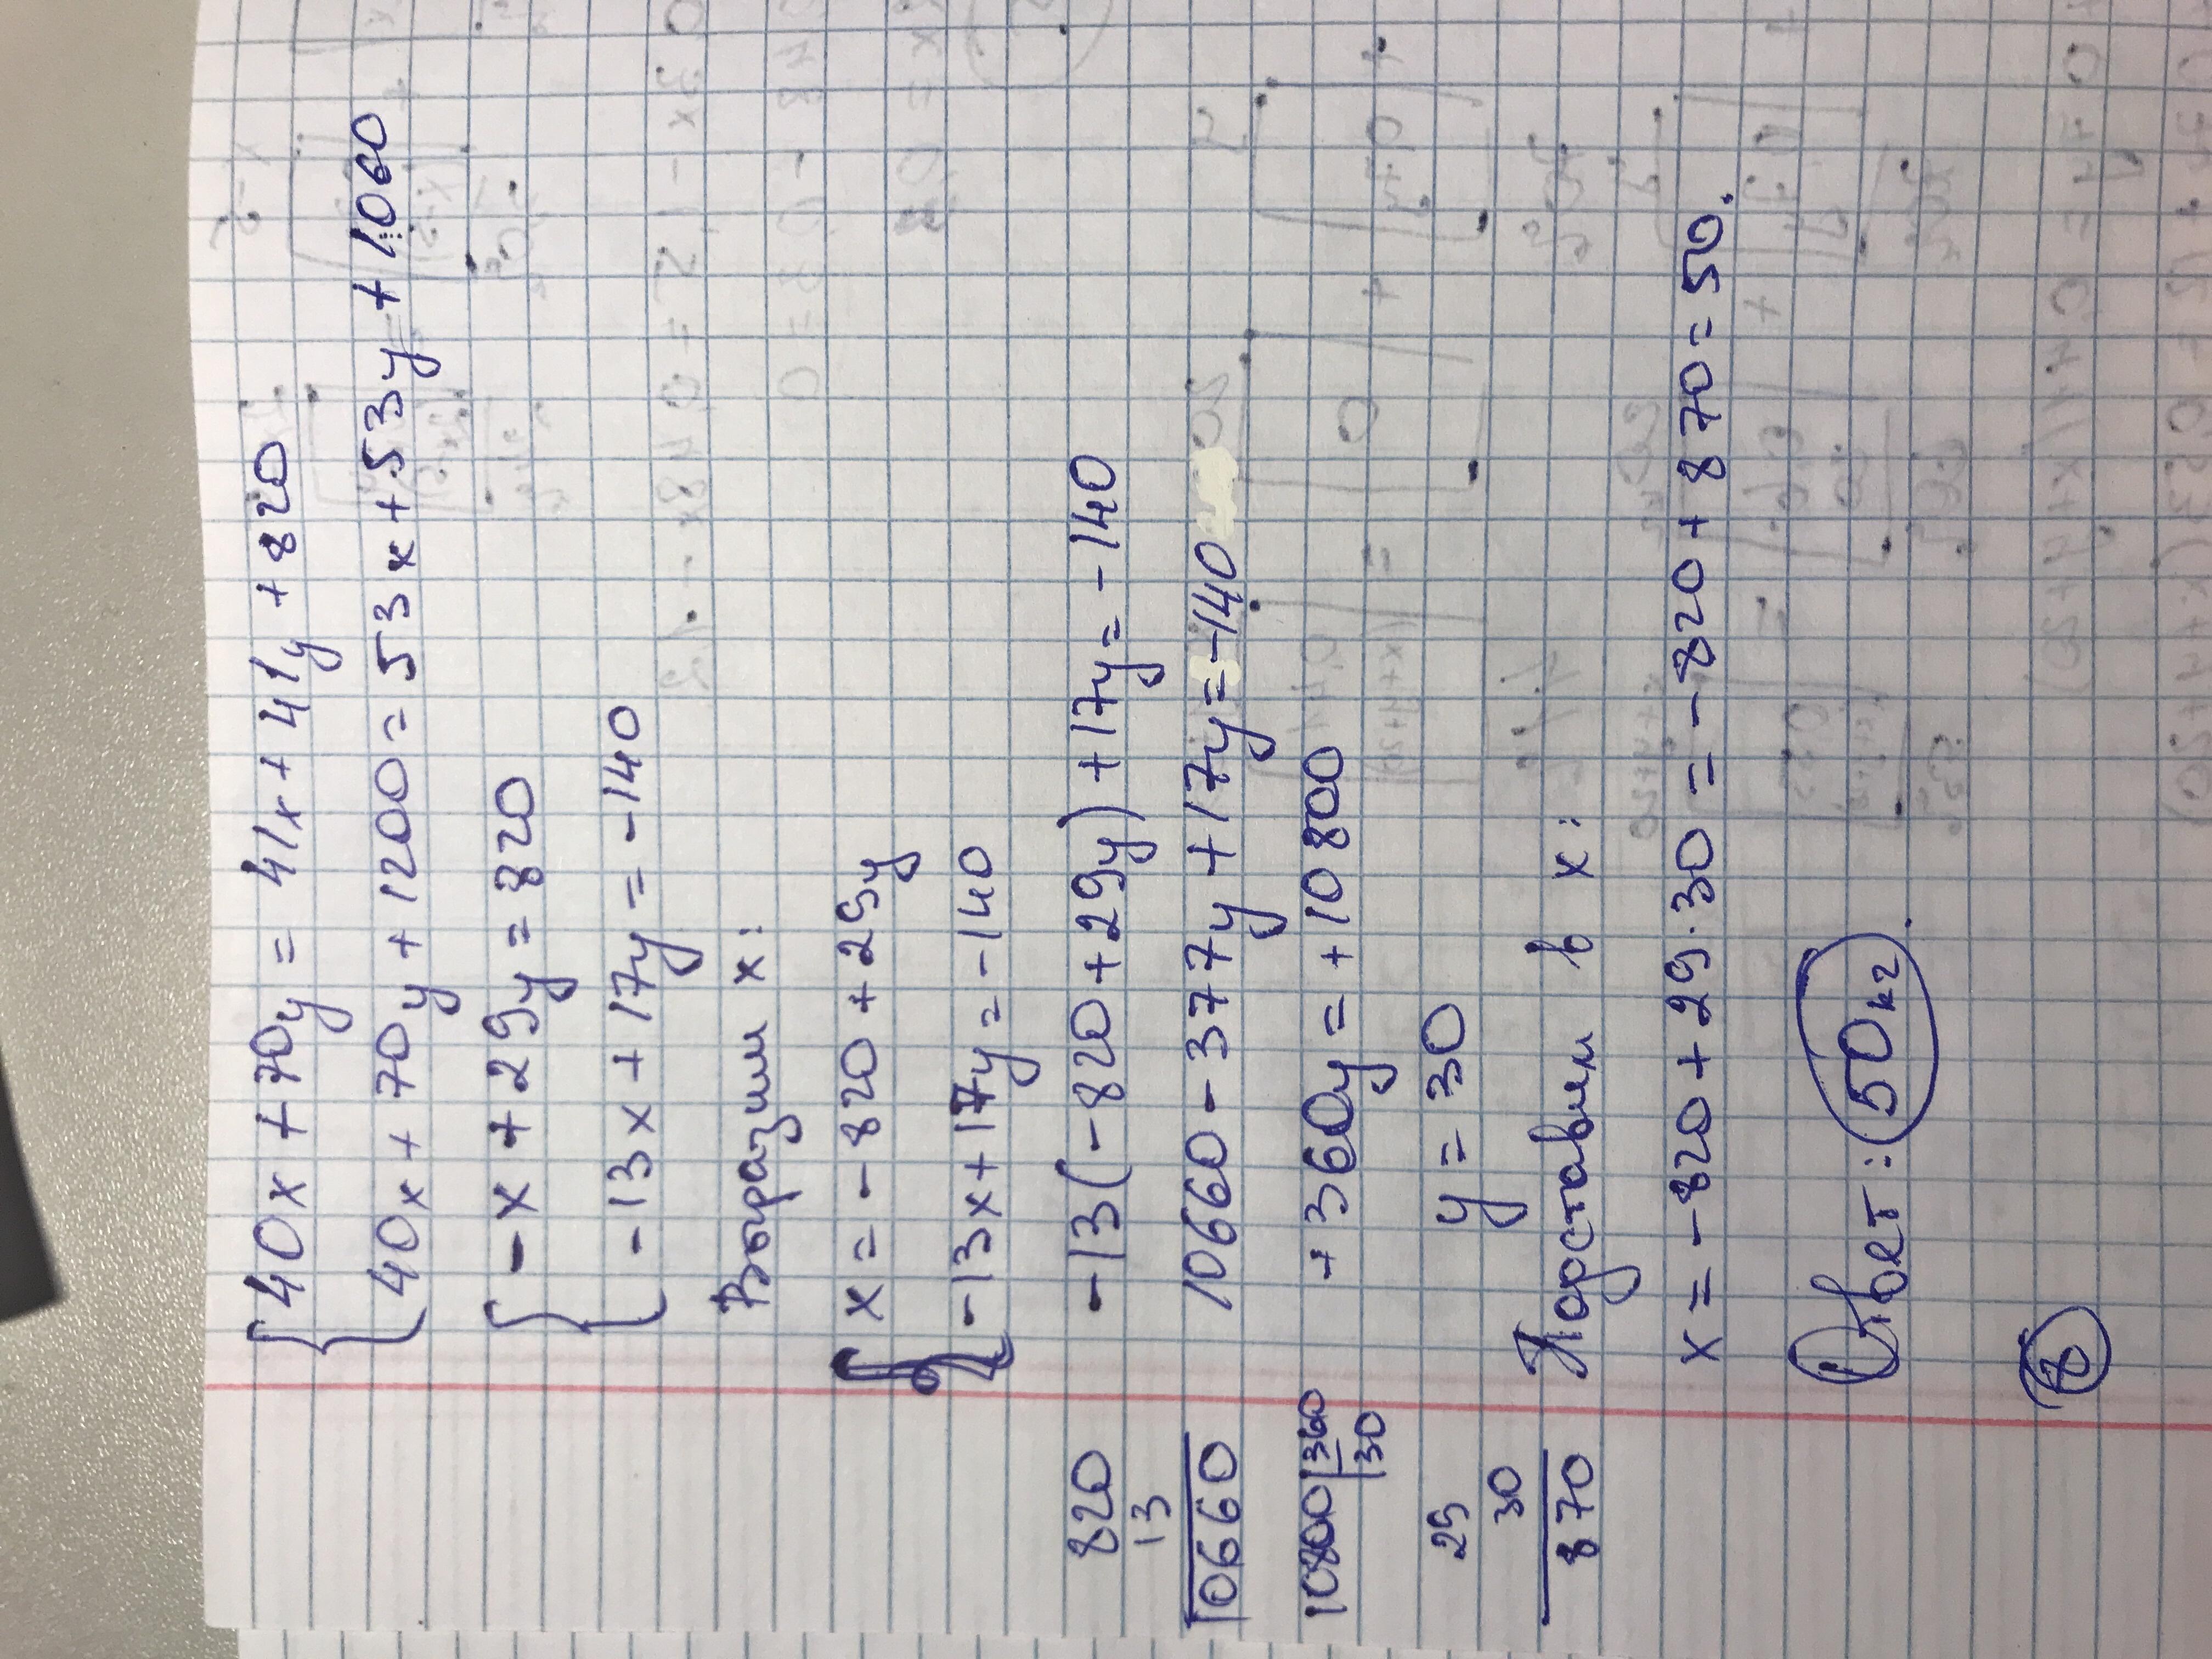 40x + 70y = 41x + 41y + 820
40x + 70y + 1200 = 53x + 53y + 1060
-x + 29y = 820
-13x + 17y = -140
Выразим x:
x = -820 + 29y
-13x + 17y = -140
820
13
10660
-13(-820 + 29y) + 17y = -140
10660 - 377y + 17y = -140
10800 | 360
30
+360y = +10800
29
30
870
y = 30
Подставим в x:
x = -820 + 29·30 = -820 + 870 = 50.
Ответ: 50кг.
8